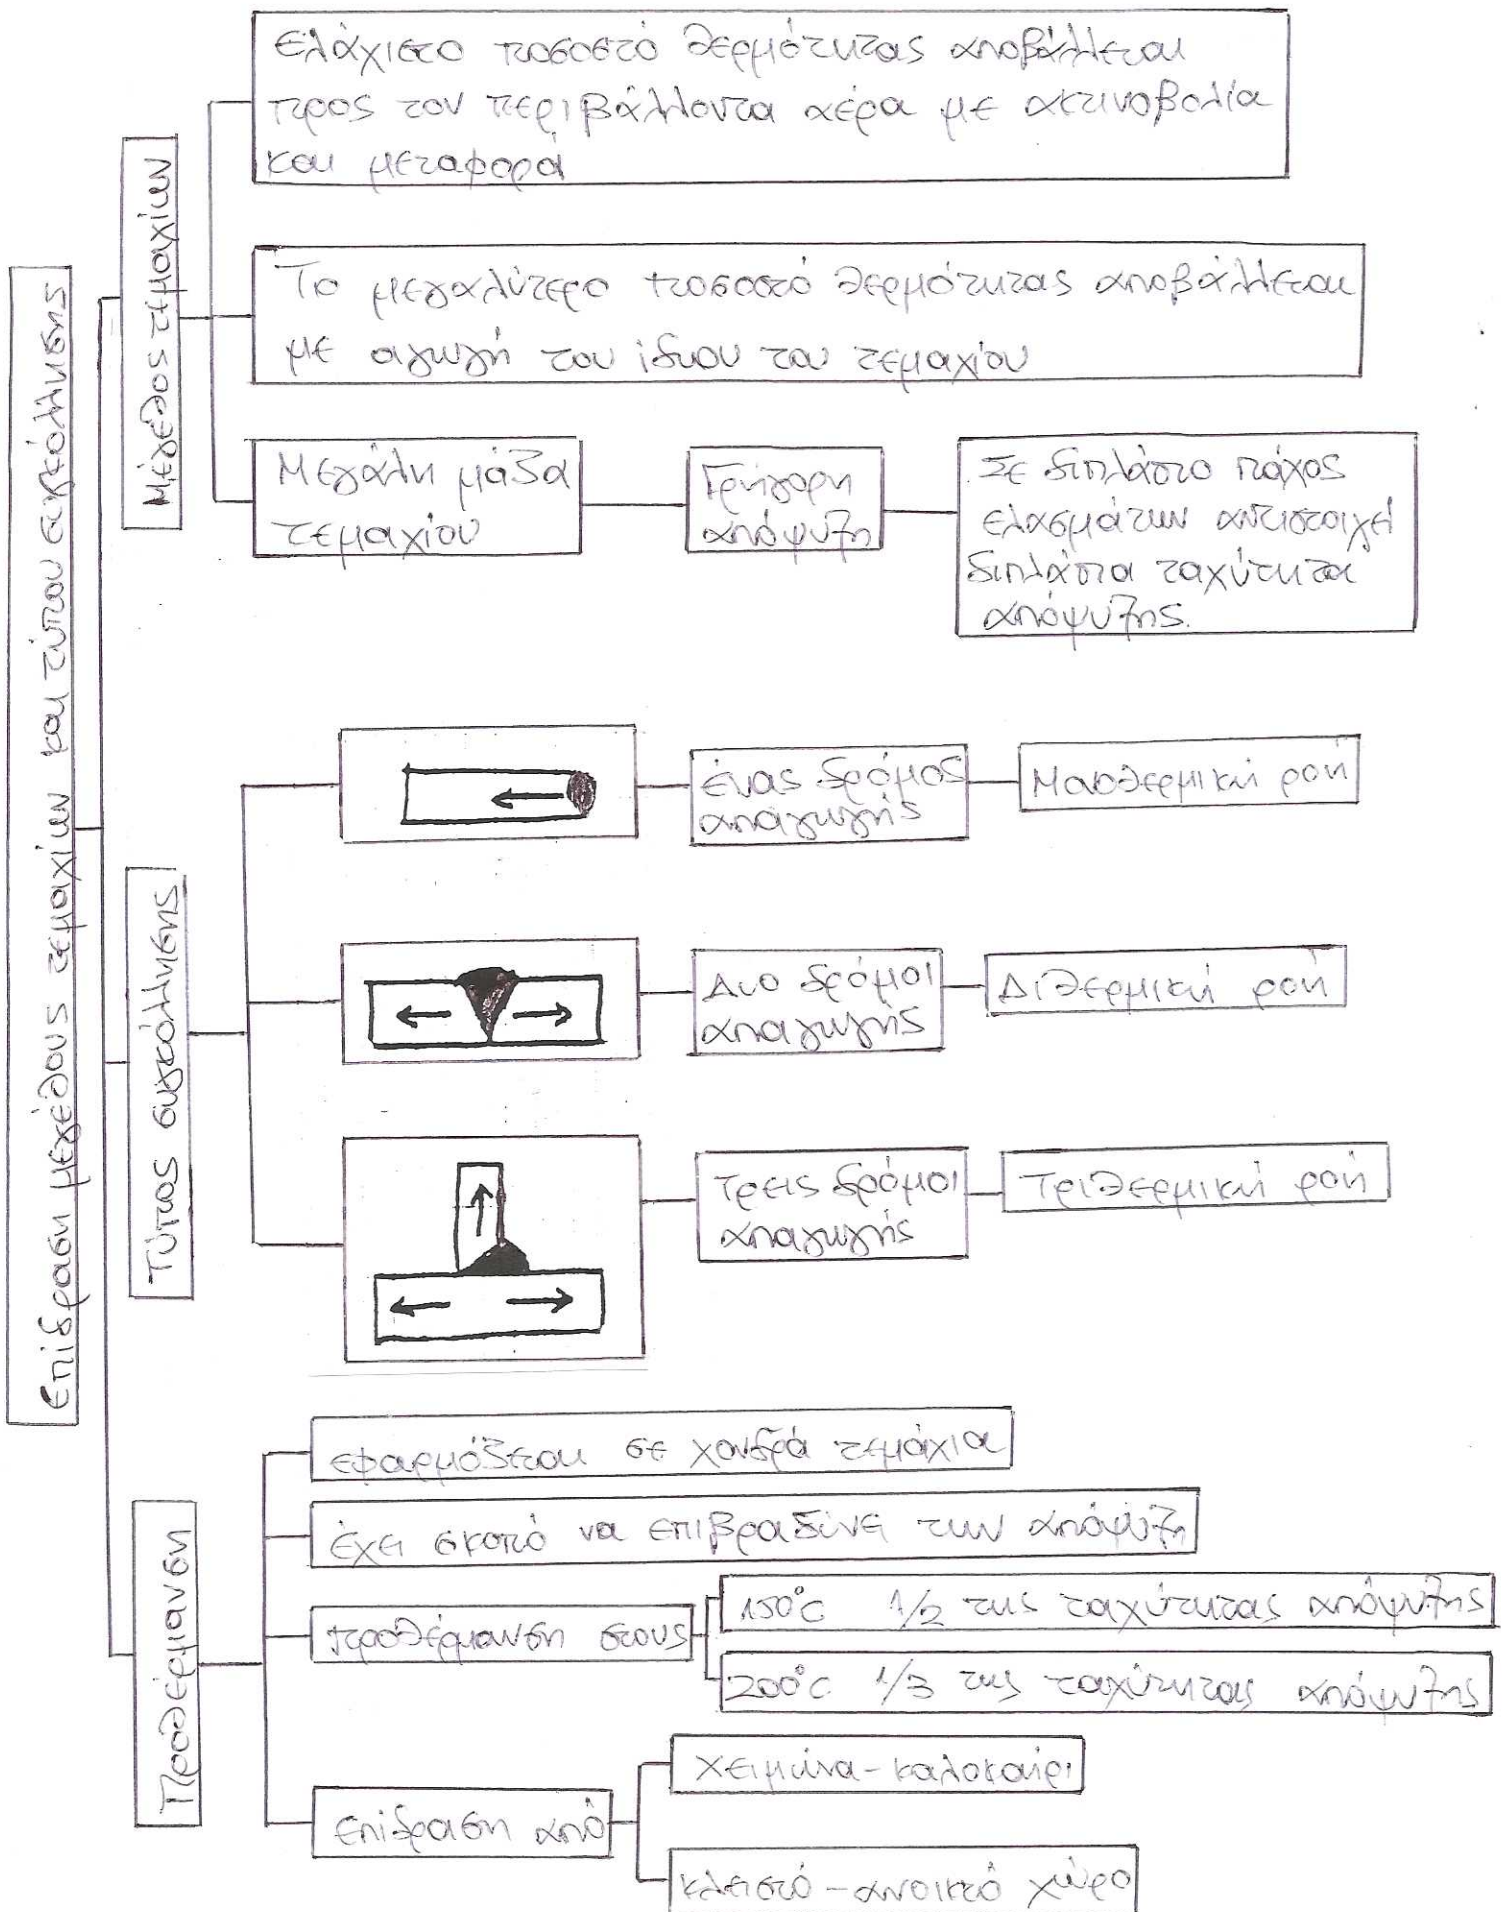 Επίδραση μεγέθους τεμαχίων και τύπου συγκόλλησης
Μέγεθος τεμαχίων
Ελάχιστο ποσοστό θερμότητας αποβάλλεται
προς τον περιβάλλοντα αέρα με ακτινοβολία
και μεταφορά
Το μεγαλύτερο ποσοστό θερμότητας αποβάλλεται
με αγωγή του ίδιου του τεμαχίου
Μεγάλη μάζα
τεμαχίου
Γρήγορη
απόψυξη
Σε διπλάσιο πάχος
ελασμάτων αντιστοιχεί
διπλάσια ταχύτητα
απόψυξης.
Τύπος συγκόλλησης
ένας δρόμος
απαγωγής
Μονοθερμική ροή
Δυο δρόμοι
απαγωγής
Διθερμική ροή
Τρεις δρόμοι
απαγωγής
Τριθερμική ροή
Προθέρμανση
εφαρμόζεται σε χονδρά τεμάχια
έχει σκοπό να επιβραδύνει την απόψυξη
προθέρμανση στους
150°C 1/2 της ταχύτητας απόψυξης
200°C 1/3 της ταχύτητας απόψυξης
Επίδραση από
χειμώνα - καλοκαίρι
κλειστό - ανοικτό χώρο